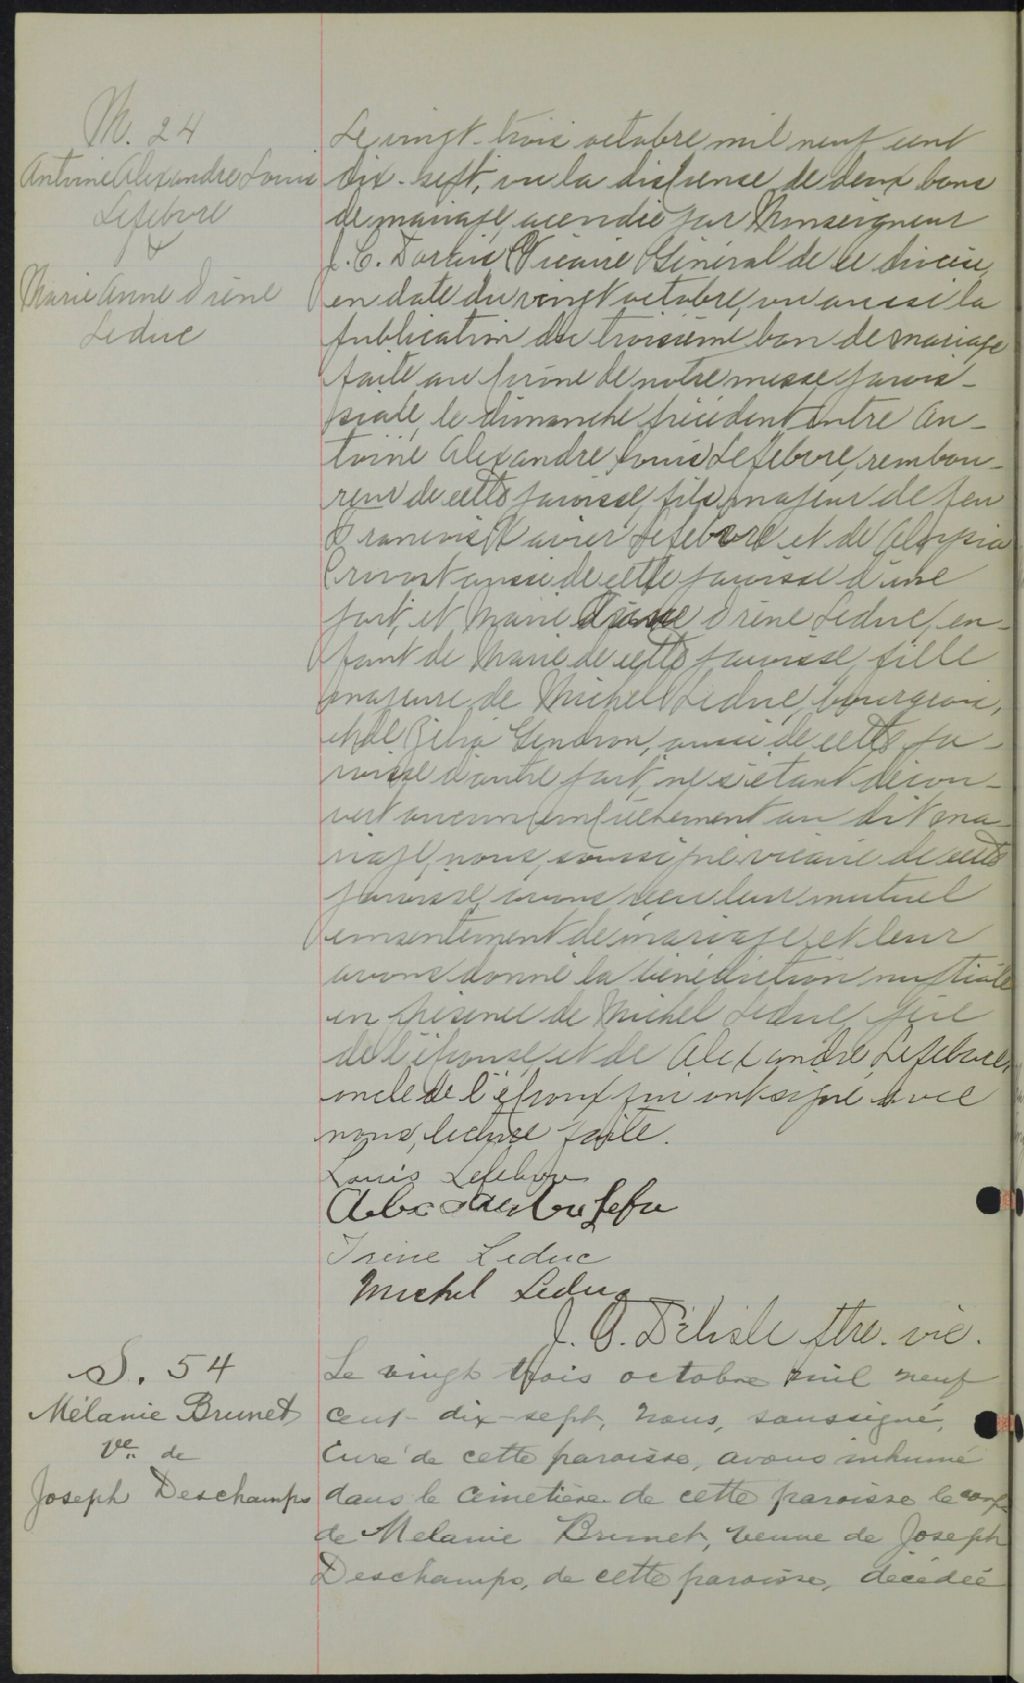 M. 24
Antoine Alexandre Louis
Lefebvre
&
Marie Anne Irène
Leduc
Le vingt-trois octobre mil neuf cent
dix-sept, vu la dispense de deux bans
de mariage, accordée par Monseigneur
J. C. Vicaire Général de ce diocèse,
en date du vingt octobre, vu aussi la
publication du troisième ban de mariage
faite au prône de notre messe parois-
siale, le dimanche précédent entre An-
toine Alexandre Louis Lefebvre, rembou-
reur de cette paroisse, fils majeur de feu
François Xavier Lefebvre et de
Prevost aussi de cette paroisse d'une
part, et Marie Anne Irène Leduc, en-
fant de Marie de cette paroisse, fille
majeure de Michel Leduc, bourgeois,
et de Zélia Gendron, aussi de cette pa-
roisse d'autre part, ne s'étant décou-
vert aucun empêchement au dit ma-
riage, nous, soussigné vicaire de cette
paroisse, avons reçu leur mutuel
consentement de mariage, et leur
avons donné la bénédiction nuptiale
en présence de Michel Leduc, père
de l'épouse, et de Alexandre Lefebvre,
oncle de l'époux qui ont signé avec
nous, lecture faite.
Louis Lefebvre
Irène Leduc
Michel Leduc
J. O. Delisle ptre. vic.
S. 54
Mélanie Brunet
Ve. de
Joseph Deschamps
Le vingt trois octobre mil neuf
cent-dix-sept, nous, soussigné,
Curé de cette paroisse, avons inhumé
dans le cimetière de cette paroisse le corps
de Mélanie Brunet, veuve de Joseph
Deschamps, de cette paroisse, décédée